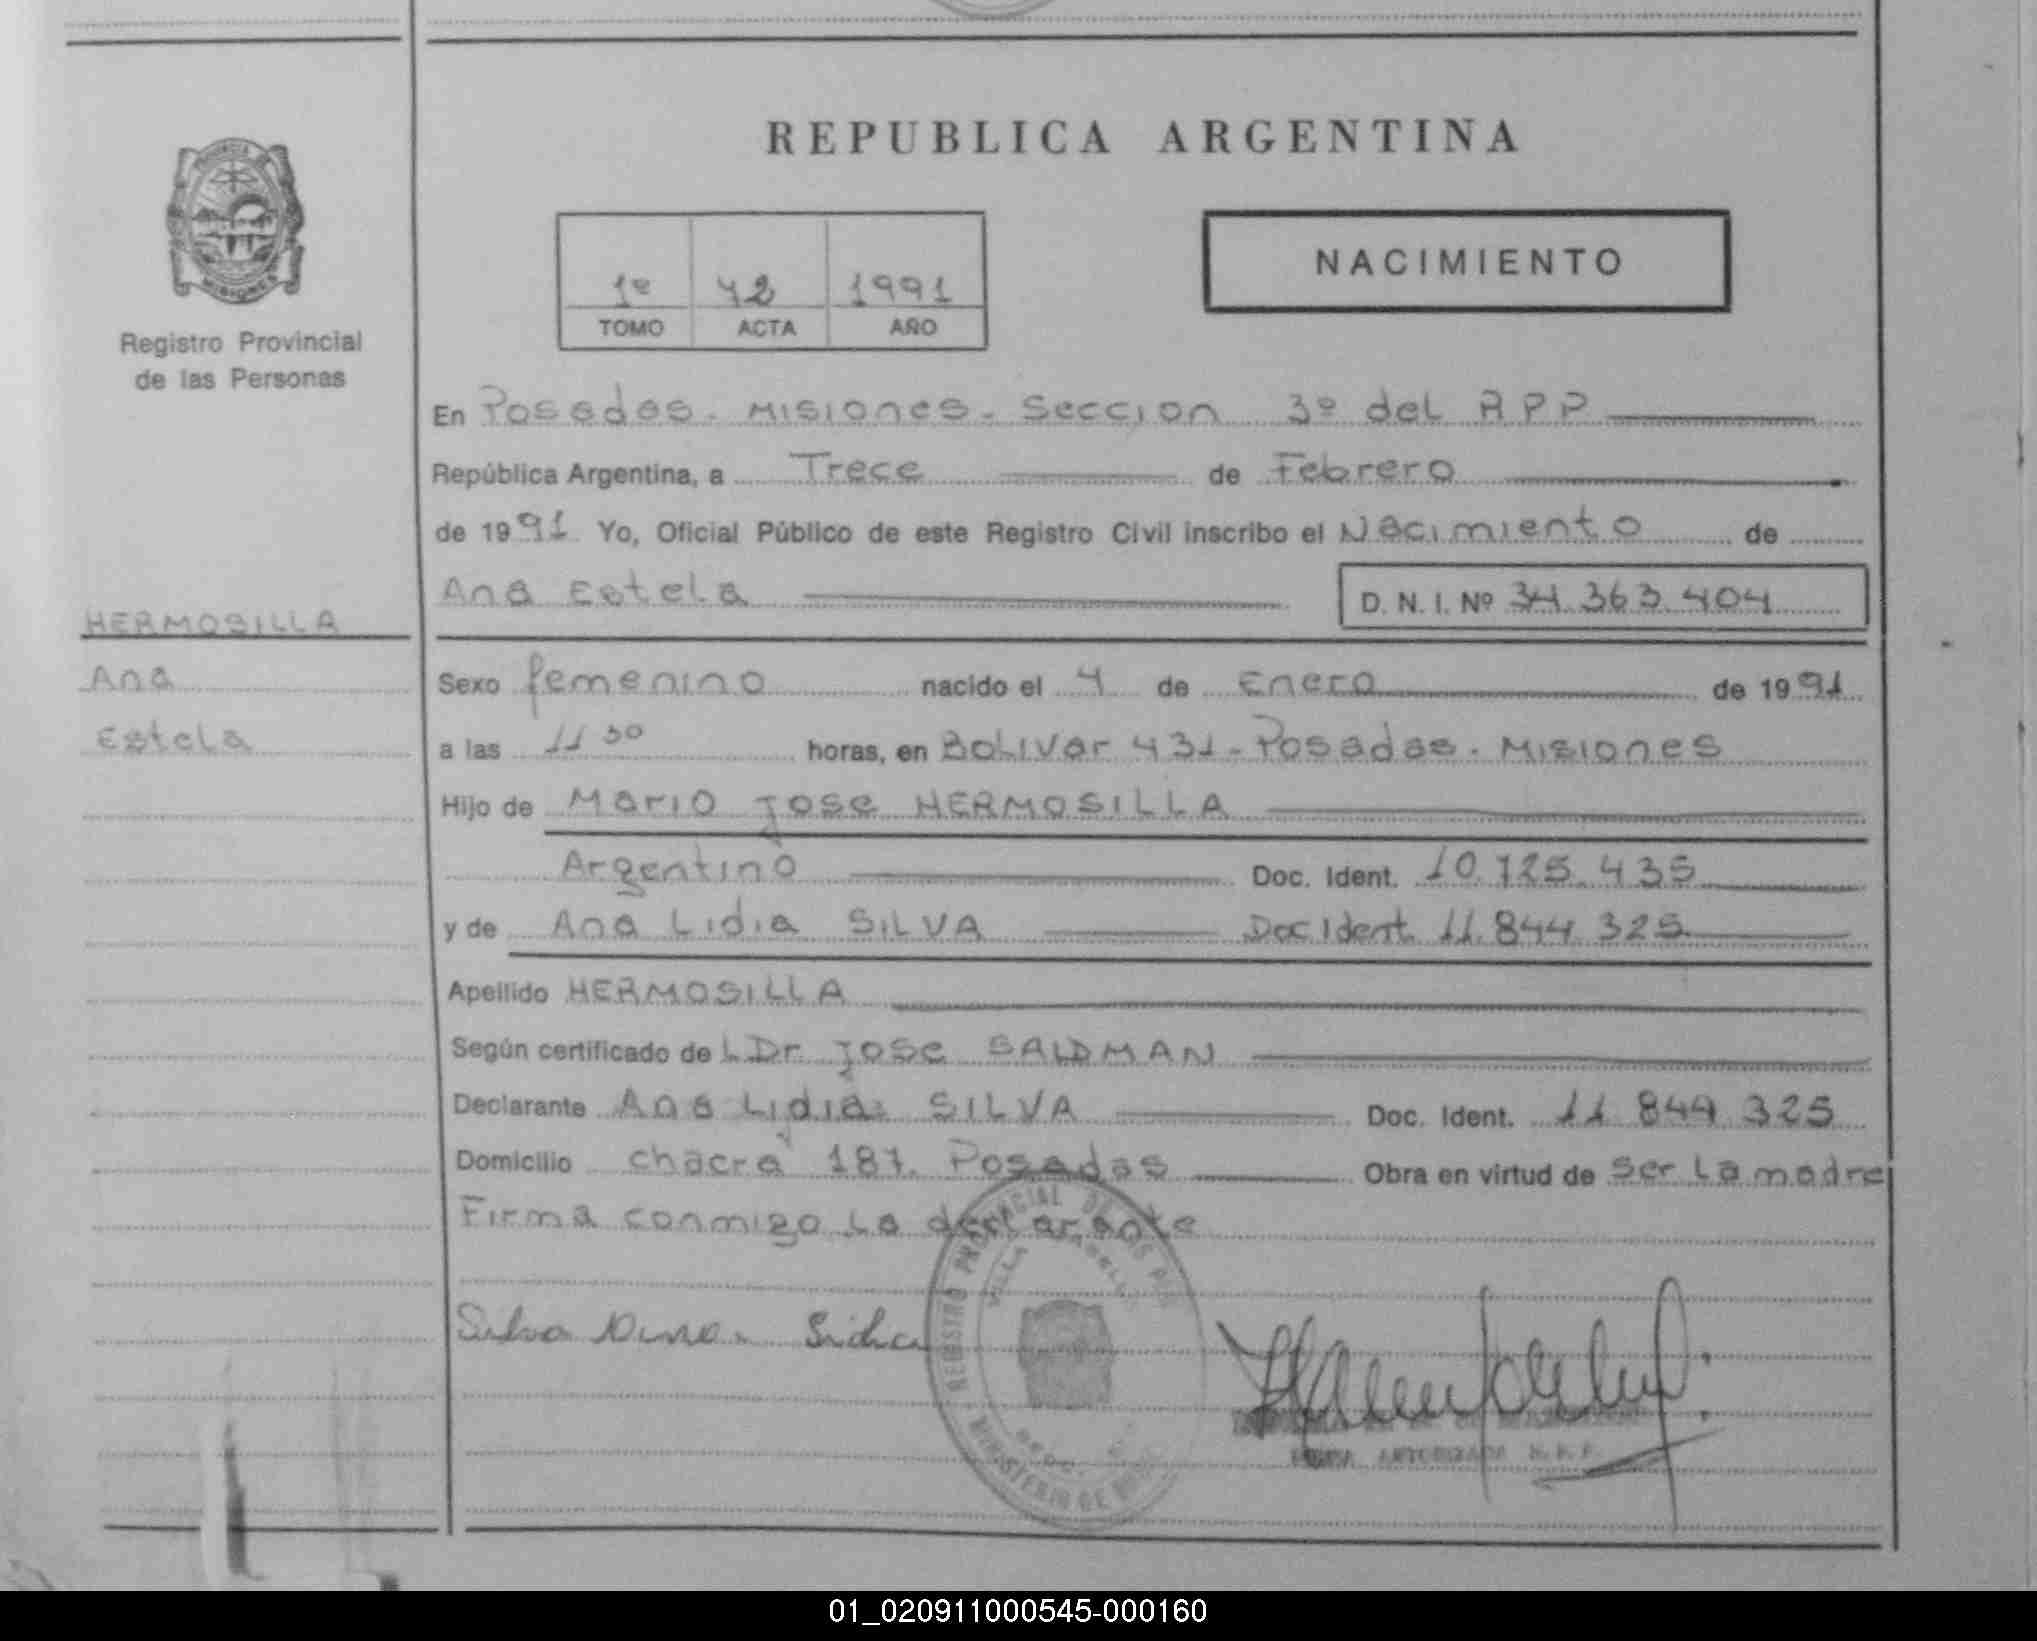 REPUBLICA ARGENTINA
PROVINCIA DE
MISIONES
Registro Provincial
de las Personas
1º 42 1991
TOMO ACTA AÑO
NACIMIENTO
En Posadas. Misiones. Seccion 3º del RPP
República Argentina, a Trece de Febrero
de 1991 Yo, Oficial Público de este Registro Civil inscribo el Nacimiento de
Ana Estela D. N. I. Nº 34.363.404
HERMOSILLA
Ana
Estela
Sexo femenino nacido el 4 de Enero de 1991
a las 11 30 horas, en Bolivar 431 - Posadas. Misiones
Hijo de Mario Jose HERMOSILLA
Argentino Doc. Ident. 10.725.435
y de Ana Lidia SILVA Doc Ident. 11.844.325
Apellido HERMOSILLA
Según certificado de L Dr Jose SALDMAN
Declarante Ana Lidia SILVA Doc. Ident. 11 844 325
Domicilio chacra 187. Posadas Obra en virtud de ser la madre
Firma conmigo la declarante
REGISTRO PROVINCIAL DE LAS
VILLA
MINISTERIO DE
Silva Lidia
FIRMA AUTORIZADA R. P. P.
01_020911000545-000160